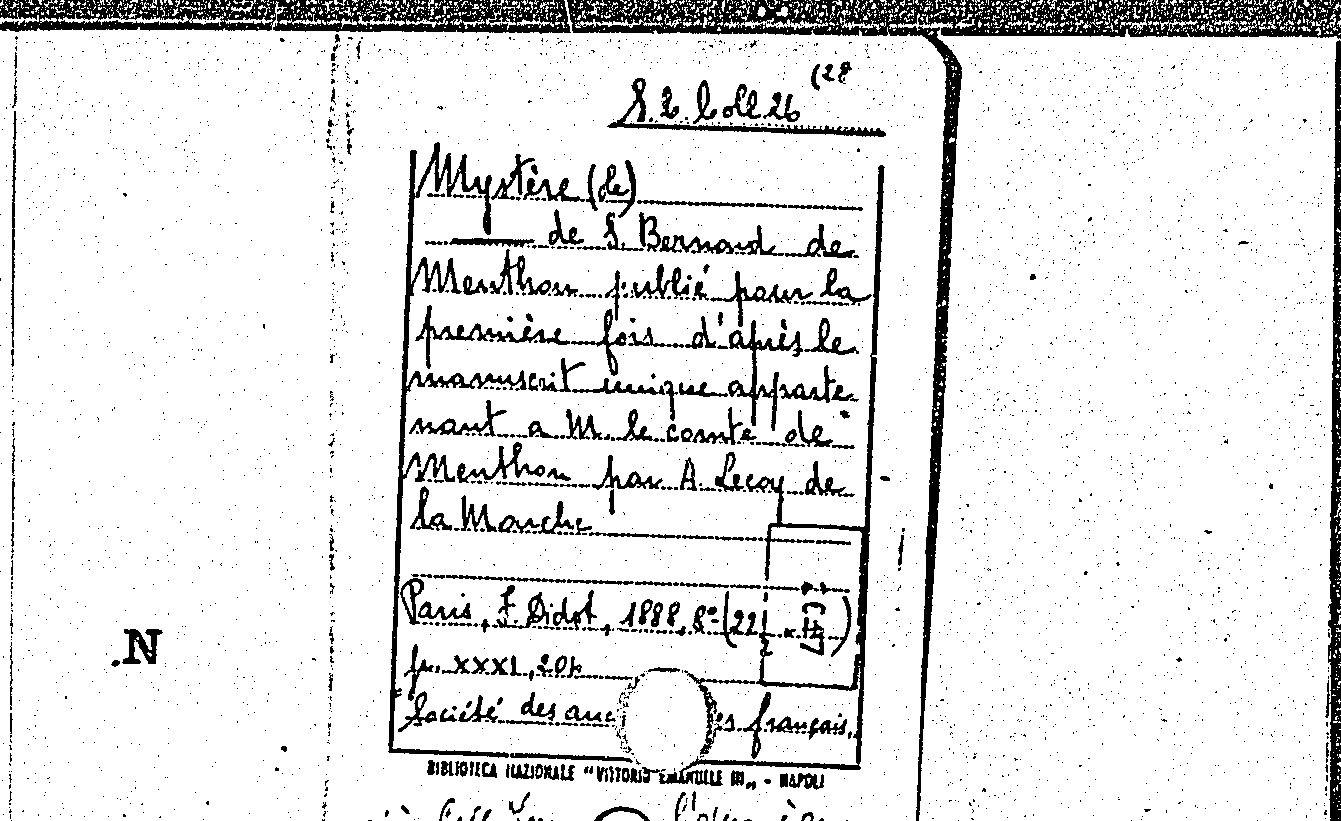 (28
S. 2. Coll 26
Mystère (le)
de S. Bernard de
Menthon publié pour la
première fois d'après le
manuscrit unique apparte
nant a M. le comte de
Menthon par A. Lecoy de
la Marche
Paris, F. Didot, 1888, 8º (22
pp. XXXI, 205
"Société des anc es français.
.N
BIBLIOTECA NAZIONALE "VITTORIO EMANUELE III" - NAPOLI